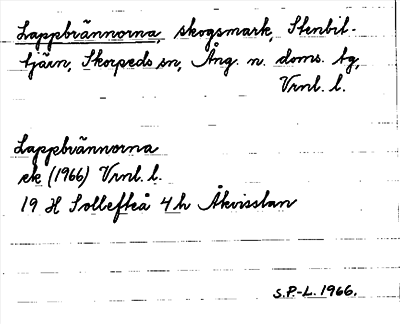 Lappbrännorna, skogsmark, Stenbit-
tjärn, Skorpeds sn, Ång. n. doms. tg,
Vrnl. l.
Lappbrännorna
ek (1966) Vrnl. l.
19 H Sollefteå 4 h Åkvisslan
S.P-L. 1966.